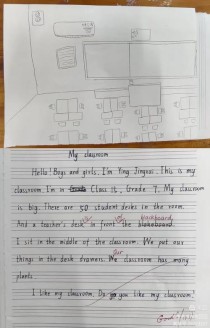 My classroom
Hello! Boys and girls. I'm Ying Jingxi. This is my
classroom. I'm in Class 16, Grade 7. My classroom
is big. There are 50 student desks in the room.
And a teacher's desk is in front of the blackboard.
I sit in the middle of the classroom. We put our
things in the desk drawers. Our classroom has many
plants.
I like my classroom. Do you like my classroom?
Good!